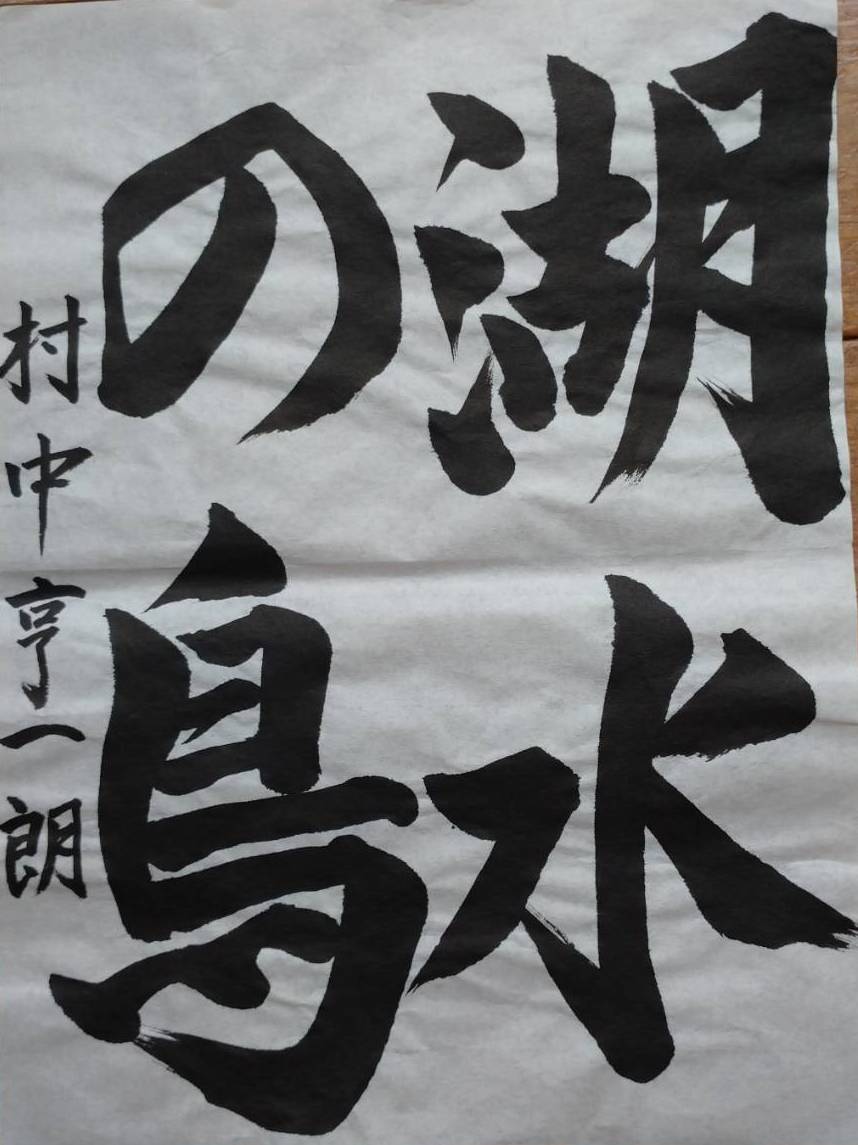 湖水
の鳥
村中亨一朗